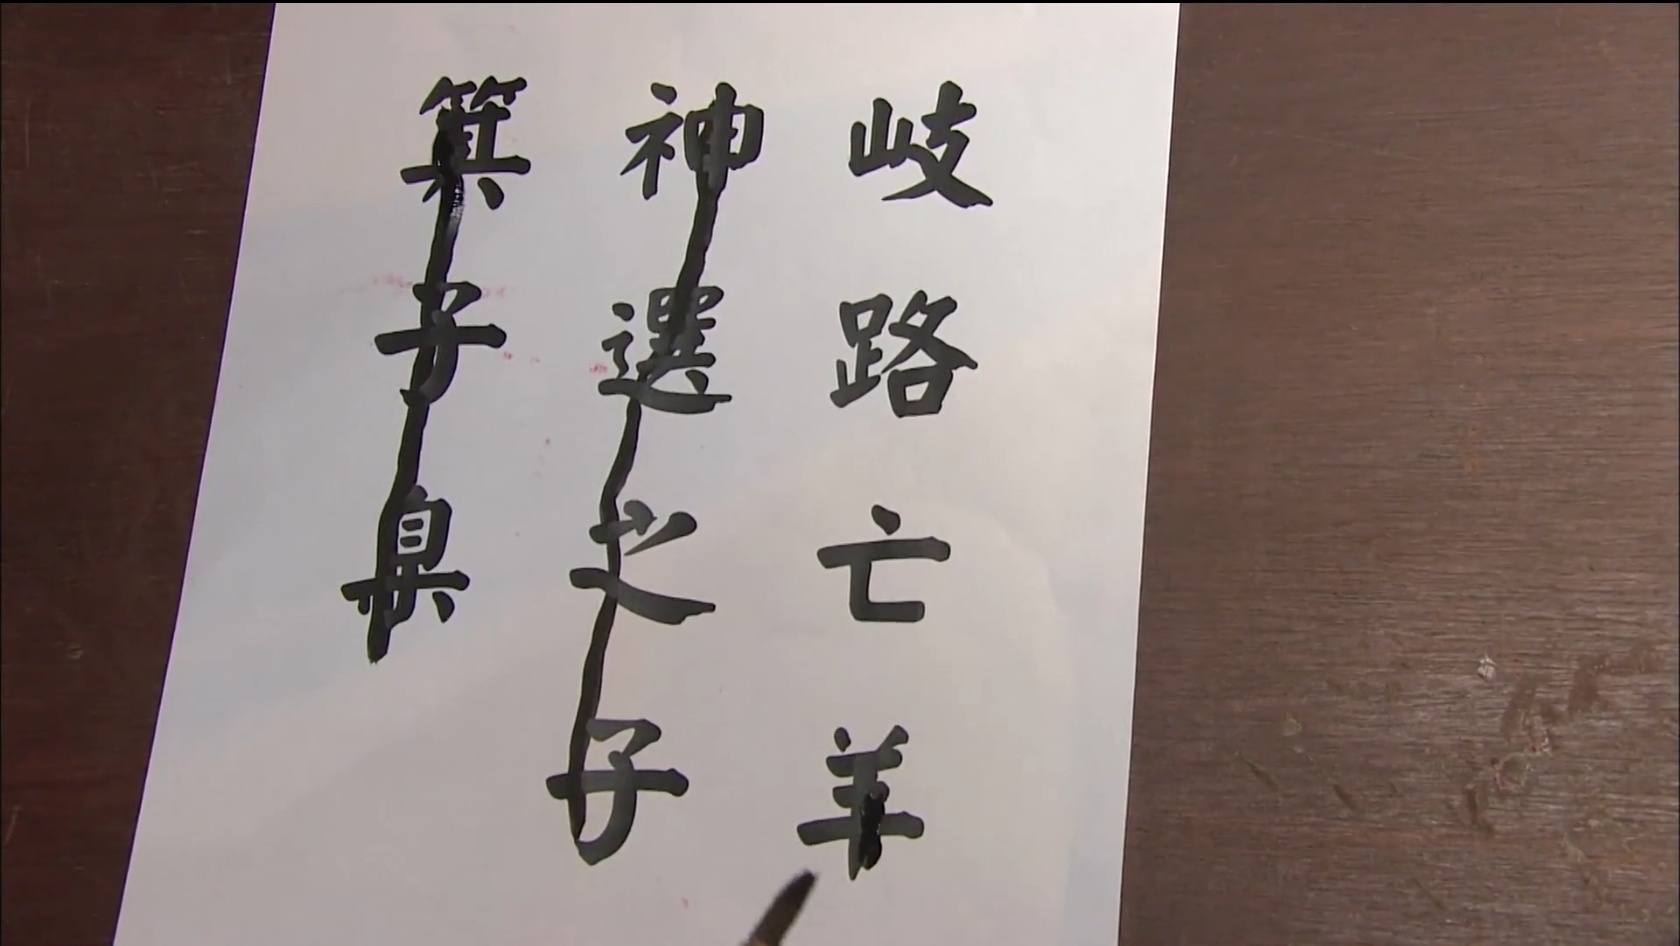 岐路亡羊
神選之子
箕子